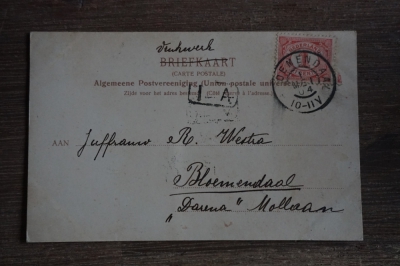 Drukwerk
BRIEFKAART
(CARTE POSTALE)
Algemeene Postvereeniging (Union postale universelle)
Zijde voor het adres bestemd. (Côté réservé à l'adresse.)
I A
10-11V
AAN Juffrouw R. Westra
Bloemendaal
„Darena" Mollaan